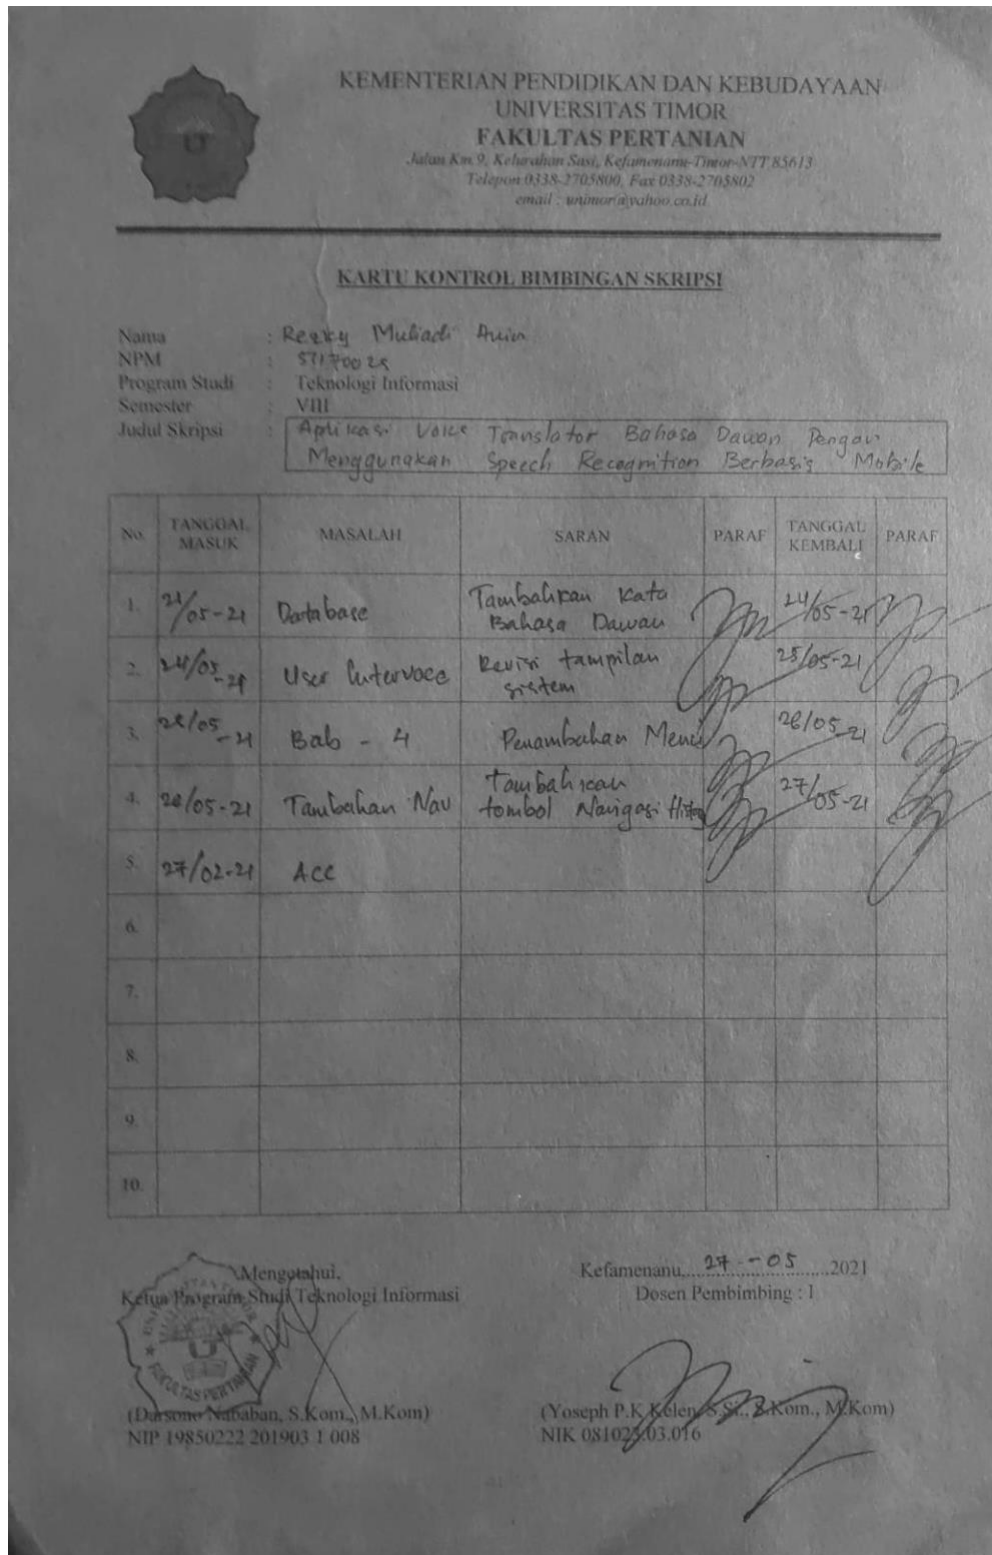 KEMENTERIAN PENDIDIKAN DAN KEBUDAYAAN
UNIVERSITAS TIMOR
FAKULTAS PERTANIAN
Jalan Km 9, Kelurahan Sasi, Kefamenanu-Timor-NTT 85613
Telepon 0338-2705800, Fax 0338-2705802
email : unimor@yahoo.co.id
KARTU KONTROL BIMBINGAN SKRIPSI
Nama : Rezky Muliadi
NPM :
Program Studi : Teknologi Informasi
Semester : VIII
Judul Skripsi : Aplikasi Voice Translator Bahasa Dawan Dengan
Menggunakan Speech Recognition Berbasis Mobile
No. TANGGAL MASUK MASALAH SARAN PARAF TANGGAL KEMBALI PARAF
1. 21/05-21 Database Tambahkan Kata Bahasa Dawan 24/05-21
2. 24/05-21 User Intervace Revisi tampilan sistem 25/05-21
3. /05-21 Bab - 4 Penambahan Menu 26/05-21
4. 26/05-21 Tambahan Nav tambahkan tombol Navigasi 27/05-21
5. 27/02-21 Acc
6.
7.
8.
9.
10.
Mengetahui,
Ketua Program Studi Teknologi Informasi
Kefamenanu, 27 - 05 2021
Dosen Pembimbing : I
FAKULTAS PERTANIAN
(Darsono Nababan, S.Kom., M.Kom)
NIP 19850222 201903 1 008
(Yoseph P.K Kelen, S.Si., S.Kom., M.Kom)
NIK 081023.03.016